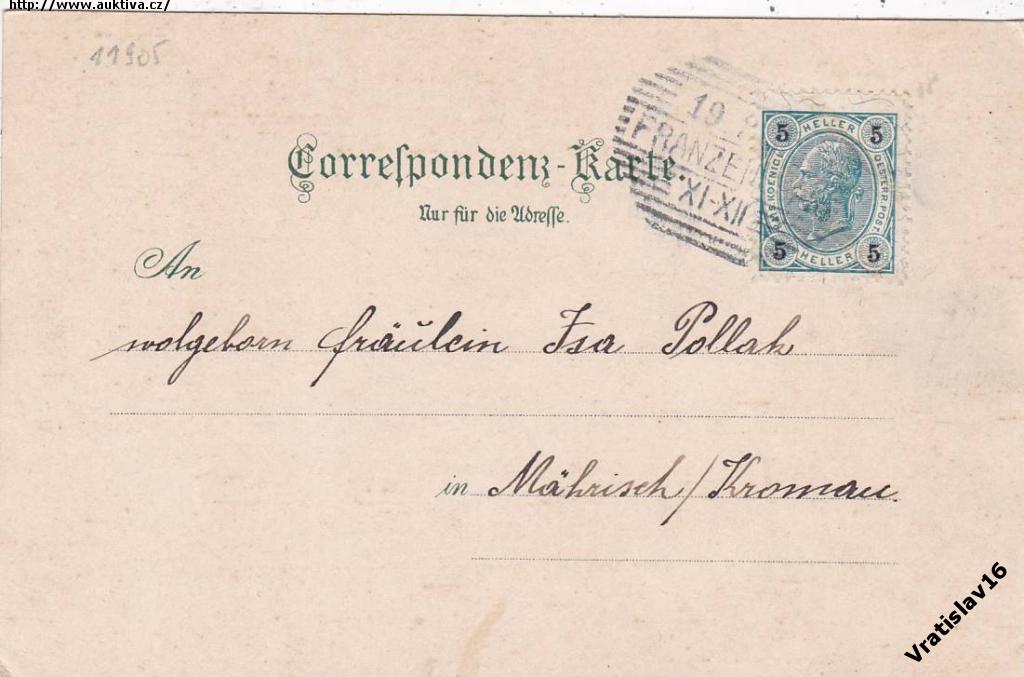 http://www.auktiva.cz/
11905
19
FRANZEN
XI-XII
5 HELLER 5
KAIS. KOENIGL. OESTERR. POST
5 HELLER 5
Correſpondenz-Karte.
Nur für die Adreſſe.
An
wolgeborn fräulein Isa Pollak
in Mährisch/Kromau.
Vratislav16